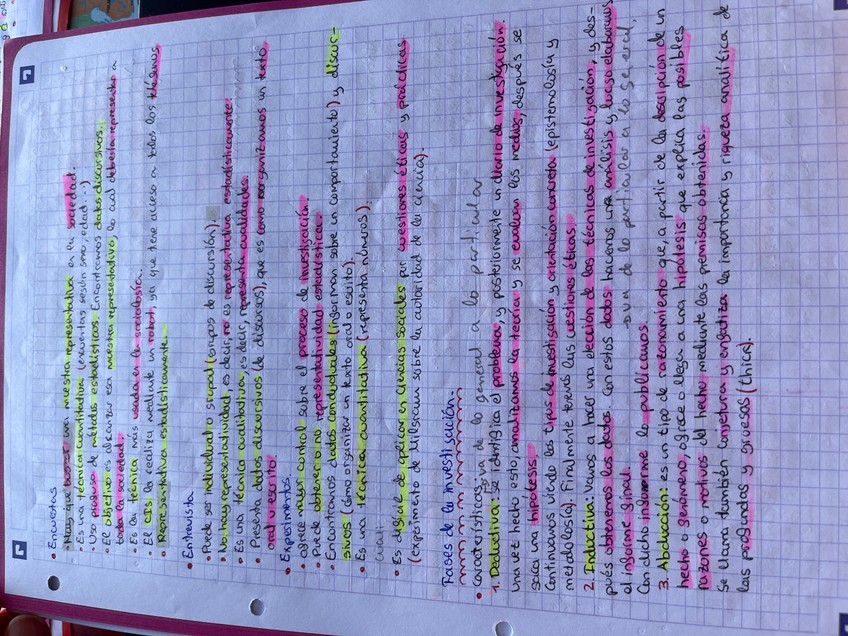 • Encuestas
• Hay que buscar una muestra representativa en la sociedad.
• Es una técnica cuantitativa (encuentas según sexo, edad...)
• Uso profuso de métodos estadísticos. Encontramos datos discursivos.
• El objetivo es alcanzar esa muestra representativa, lo cual debería representar a
toda la sociedad.
• Es la técnica más usada en la sociología.
• El CIS la realiza mediante un robot, ya que tiene acceso a todos los
• Representativa estadísticamente.
• Entrevista
• Puede ser individual o grupal (grupos de discursión).
• No hay representatividad, es decir, no es representativa estadísticamente.
• Es una técnica cualitativa, es decir, representa cualidades.
• Presenta datos discursivos (de discursos), que es como organizamos un texto
oral o escrito.
• Experimentos.
• Ofrece mayor control sobre el proceso de investigación.
• Puede obtener o no representatividad estadística.
• Encontramos datos conductuales (informan sobre un comportamiento) y discur-
sivos (cómo organizar un texto oral o esrito).
• Es una técnica cuantitativa (representa números).
cuali
• Es difícil de aplicar en Ciencias Sociales por cuestiones éticas y prácticas
(experimento de Milgram sobre la autoridad de la ciencia).
Fases de la investigación.
• Características: →va de lo general a lo particular
1. Deductiva: se identifica el problema, y posteriormente un diario de investigación.
una vez hecho esto, analizamos la teoría y se evaluan los medios, después se
saca una hipótesis.
Continuamos viendo los tipos de investigación y orientación concreta (epistemología y
metodología). Finalmente tenemos las cuestiones éticas.
2. Inductiva: Vamos a hacer una elección de las técnicas de investigación, y des-
pués obtenemos los datos. Con estos datos hacemos una análisis y luego elaboramos
el informe final. →va de lo particular a lo general.
Con dicho informe lo publicamos.
3. Abducción: es un tipo de razonamiento que, a partir de la descripción de un
hecho o fenómeno, ofrece o llega a una hipótesis que explica las posibles
razones o motivos del hecho mediante las premisas obtenidas.
Se llama también conjetura y enfatiza la importancia y riqueza analítica de
las profundas y gruesas (thick).